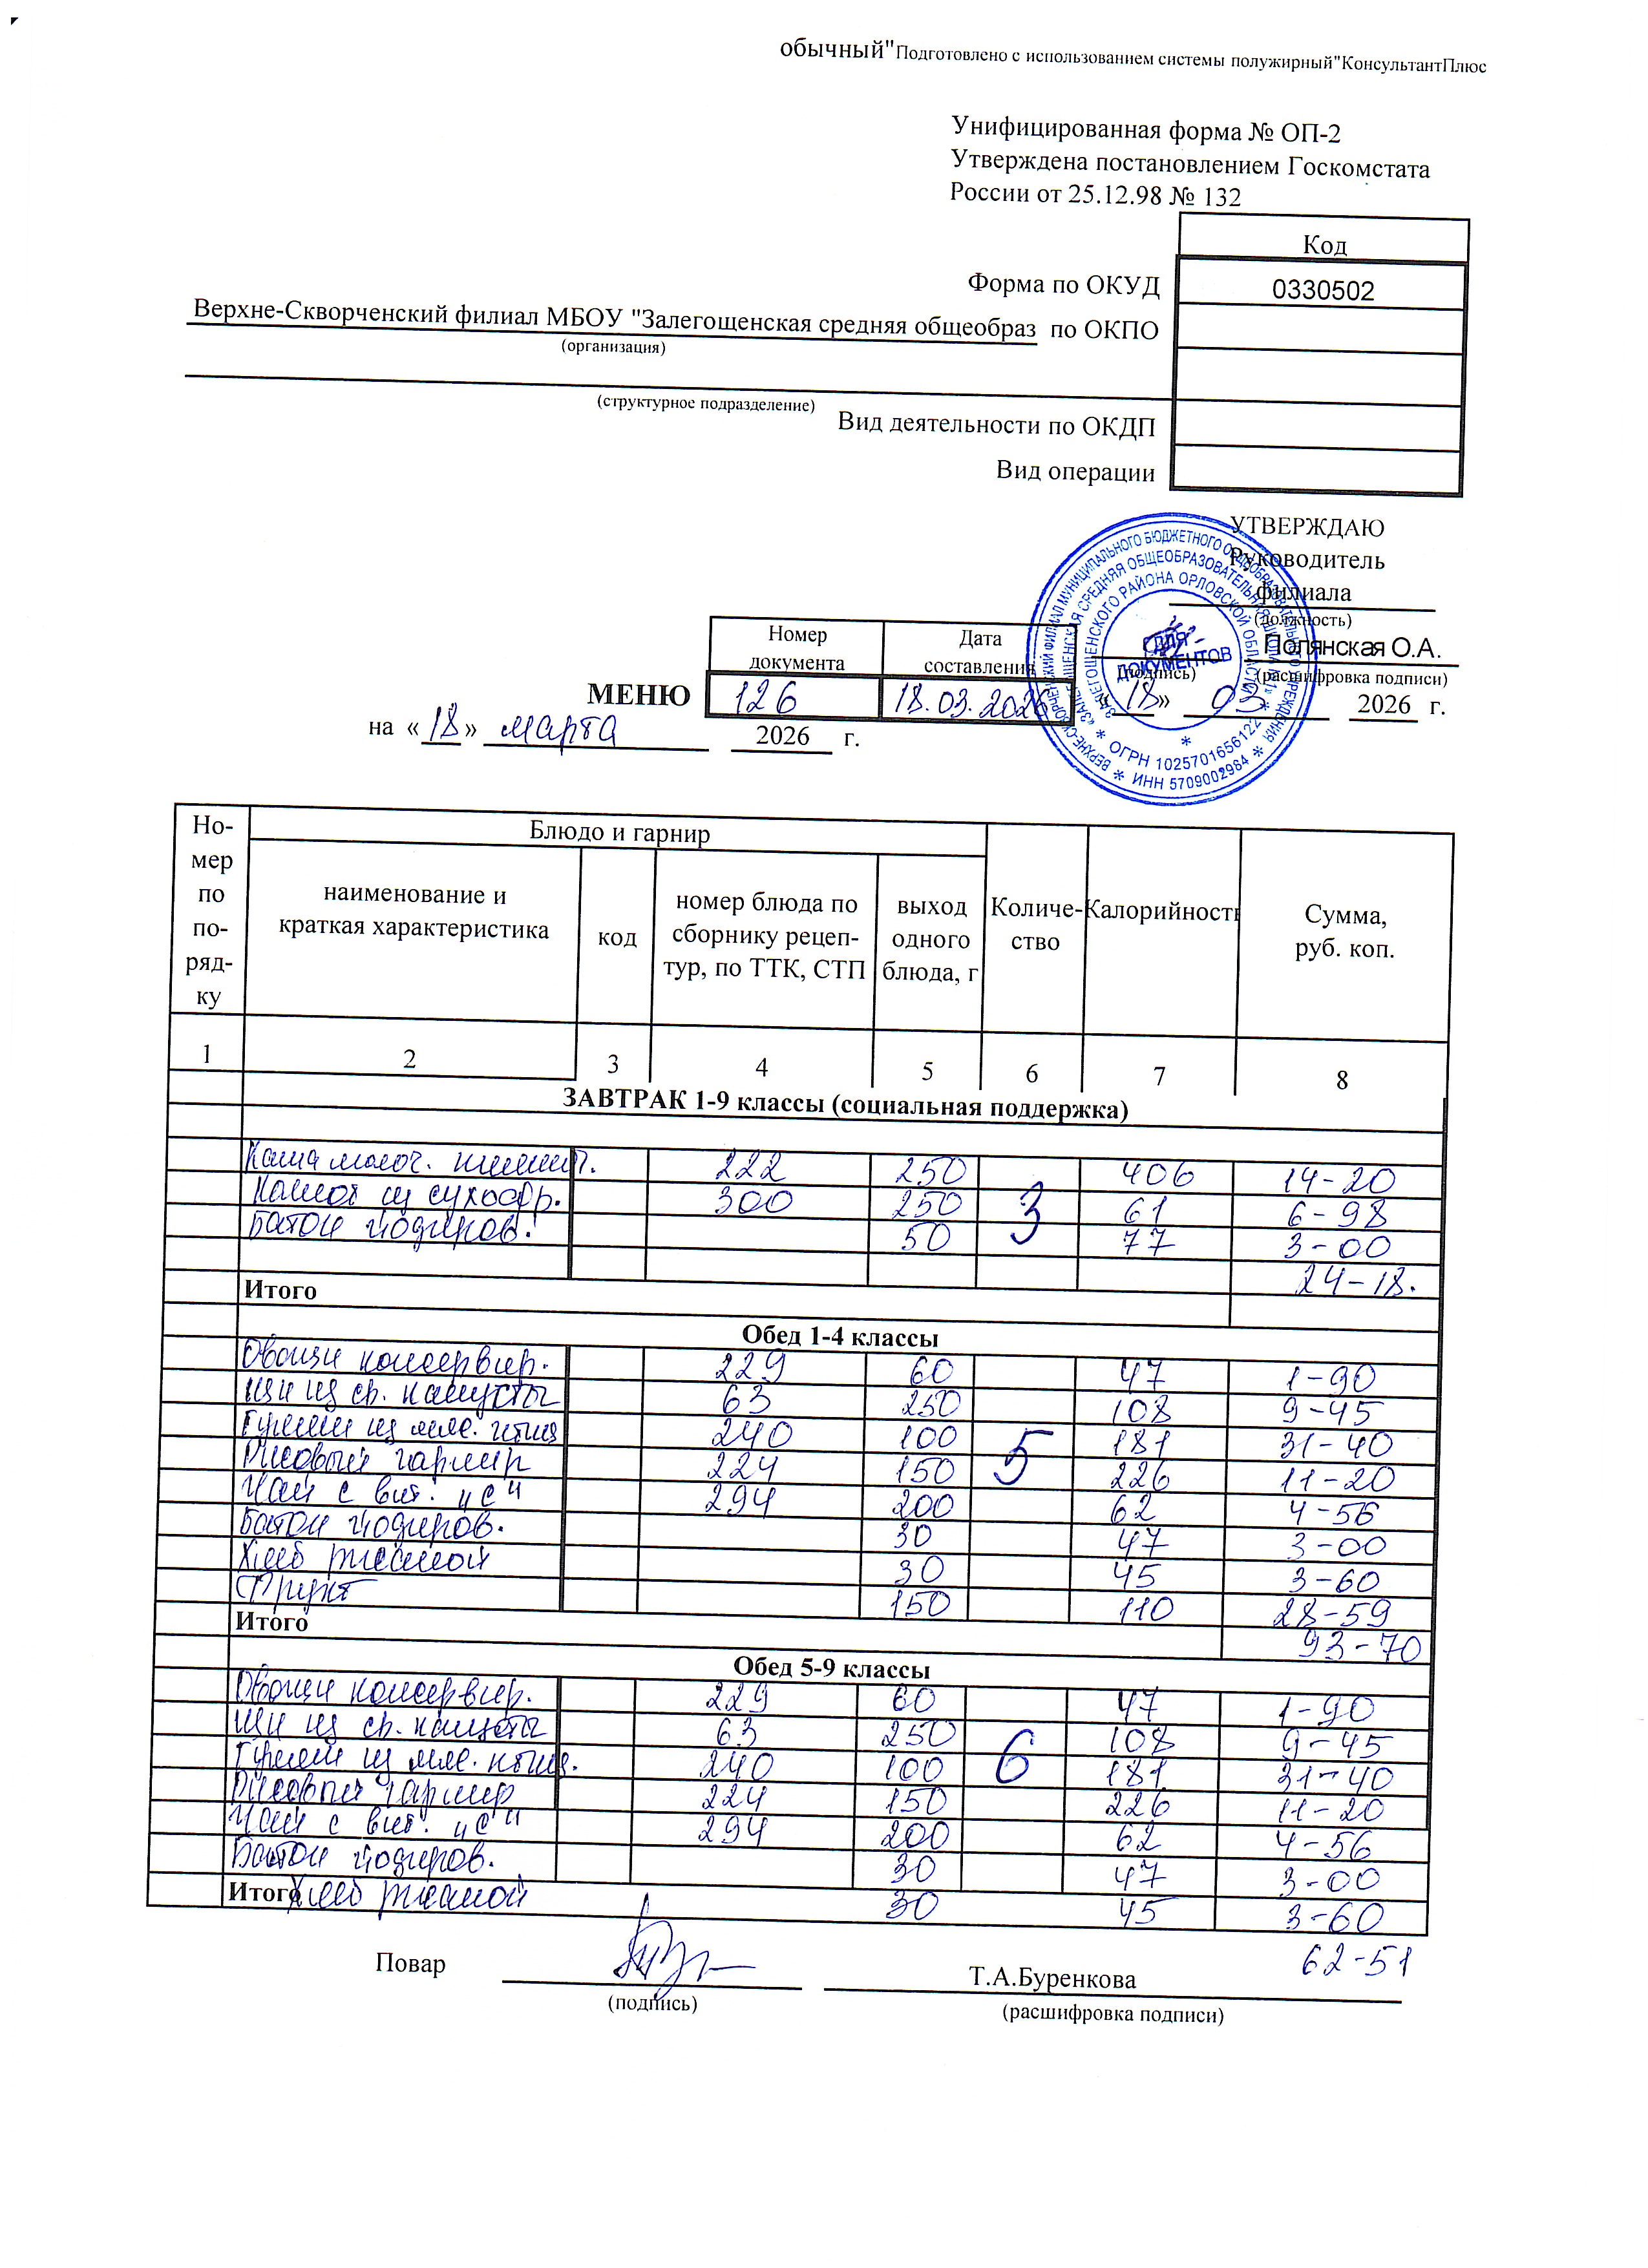 обычный"Подготовлено с использованием системы полужирный"КонсультантПлюс
Унифицированная форма № ОП-2
Утверждена постановлением Госкомстата
России от 25.12.98 № 132
Код
Форма по ОКУД 0330502
Верхне-Скворченский филиал МБОУ "Залегощенская средняя общеобраз по ОКПО
(организация)
(структурное подразделение)
Вид деятельности по ОКДП
Вид операции
УТВЕРЖДАЮ
Руководитель
филиала
(должность)
Полянская О.А.
(подпись) (расшифровка подписи)
«18» 03 2026 г.
ВЕРХНЕ-СКВОРЧЕНСКИЙ ФИЛИАЛ МУНИЦИПАЛЬНОГО БЮДЖЕТНОГО ОБЩЕОБРАЗОВАТЕЛЬНОГО УЧРЕЖДЕНИЯ * ИНН 5709002984 *
ЗАЛЕГОЩЕНСКОГО РАЙОНА ОРЛОВСКОЙ ОБЛАСТИ
* ОГРН 1025701656122 *
ДЛЯ
ДОКУМЕНТОВ
Номер документа Дата составления
МЕНЮ 126 18.03.2026
на «18» марта 2026 г.
Но-
мер
по
по-
ряд-
ку
Блюдо и гарнир
наименование и
краткая характеристика
код
номер блюда по
сборнику рецеп-
тур, по ТТК, СТП
выход
одного
блюда, г
Количе-
ство
Калорийность
Сумма,
руб. коп.
1 2 3 4 5 6 7 8
ЗАВТРАК 1-9 классы (социальная поддержка)
Каша молоч. 222 250 406 14-20
Компот из сухофр. 300 250 3 61 6-98
Батон йодиров. 50 77 3-00
24-18.
Итого
Обед 1-4 классы
Овощи консервир. 229 60 47 1-90
Щи из св. капусты 63 250 108 9-45
Гуляш из мяс. птиц 240 100 181 31-40
Рисовый гарнир 224 150 5 226 11-20
Чай с вит. "С" 294 200 62 4-56
Батон йодиров. 30 47 3-00
Хлеб ржаной 30 45 3-60
Фрукт 150 110 28-59
Итого 93-70
Обед 5-9 классы
Овощи консервир. 229 60 47 1-90
Щи из св. капусты 63 250 108 9-45
Гуляш из мяс. птиц. 240 100 6 181 31-40
Рисовый гарнир 224 150 226 11-20
Чай с вит. "С" 294 200 62 4-56
Батон йодиров. 30 47 3-00
Итого Хлеб ржаной 30 45 3-60
62-51
Повар Т.А.Буренкова
(подпись) (расшифровка подписи)